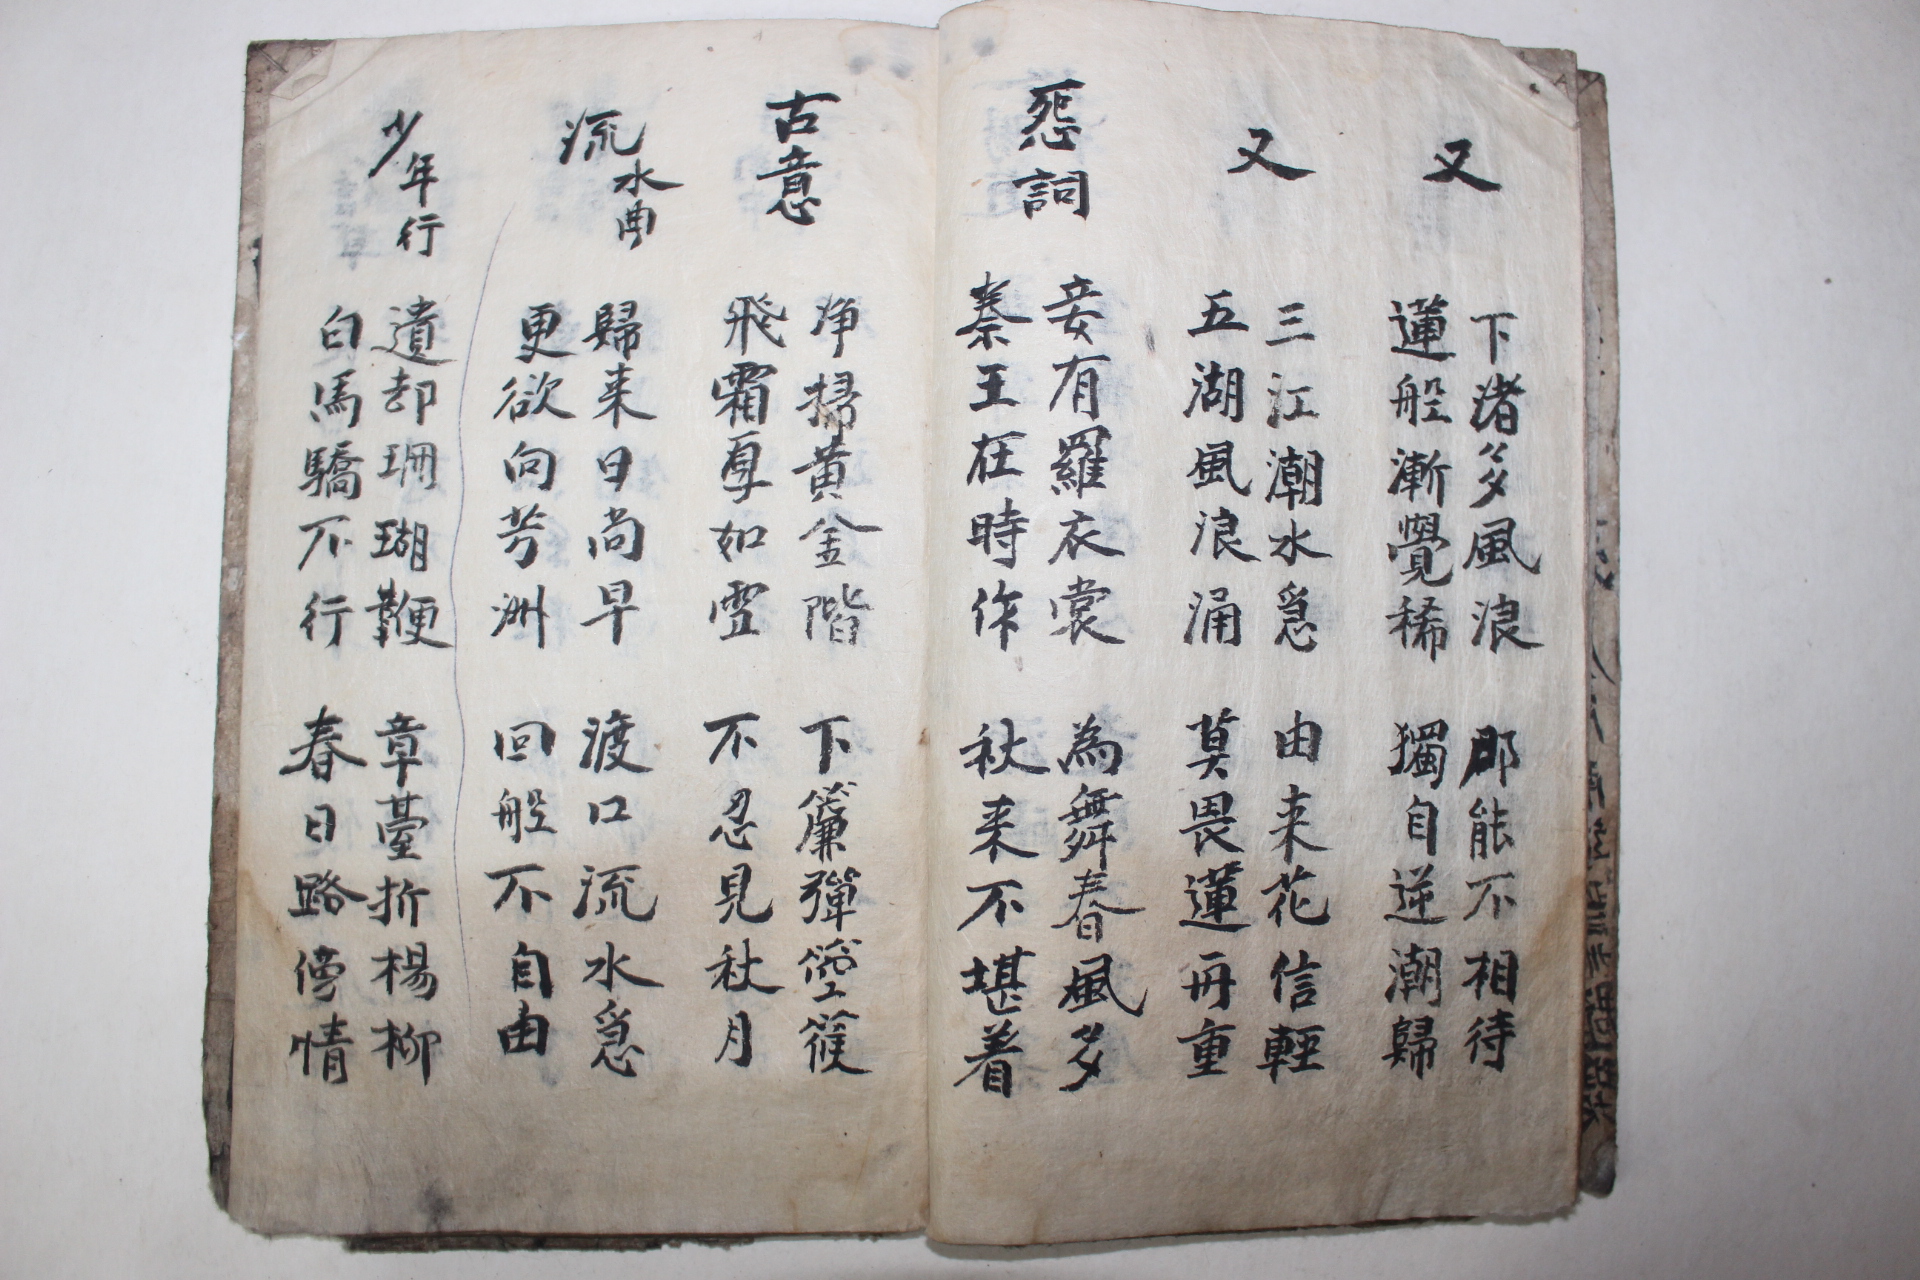 又
下渚多風浪 郍能不相待
蓮船漸覺稀 獨自逆潮歸
又
三江潮水急 由来花信輕
五湖風浪涌 莫畏蓮再重
怨詞
妾有羅衣裳 為舞春風多
秦王在時作 秋来不堪着
古意
净掃黃金階 下簾彈箜篌
飛霜厚如雪 不忍見秋月
流水曲
歸来日尚早 渡口流水急
更欲向芳洲 回船不自由
少年行
遺却珊瑚鞭 章臺折楊柳
白馬驕不行 春日路傍情